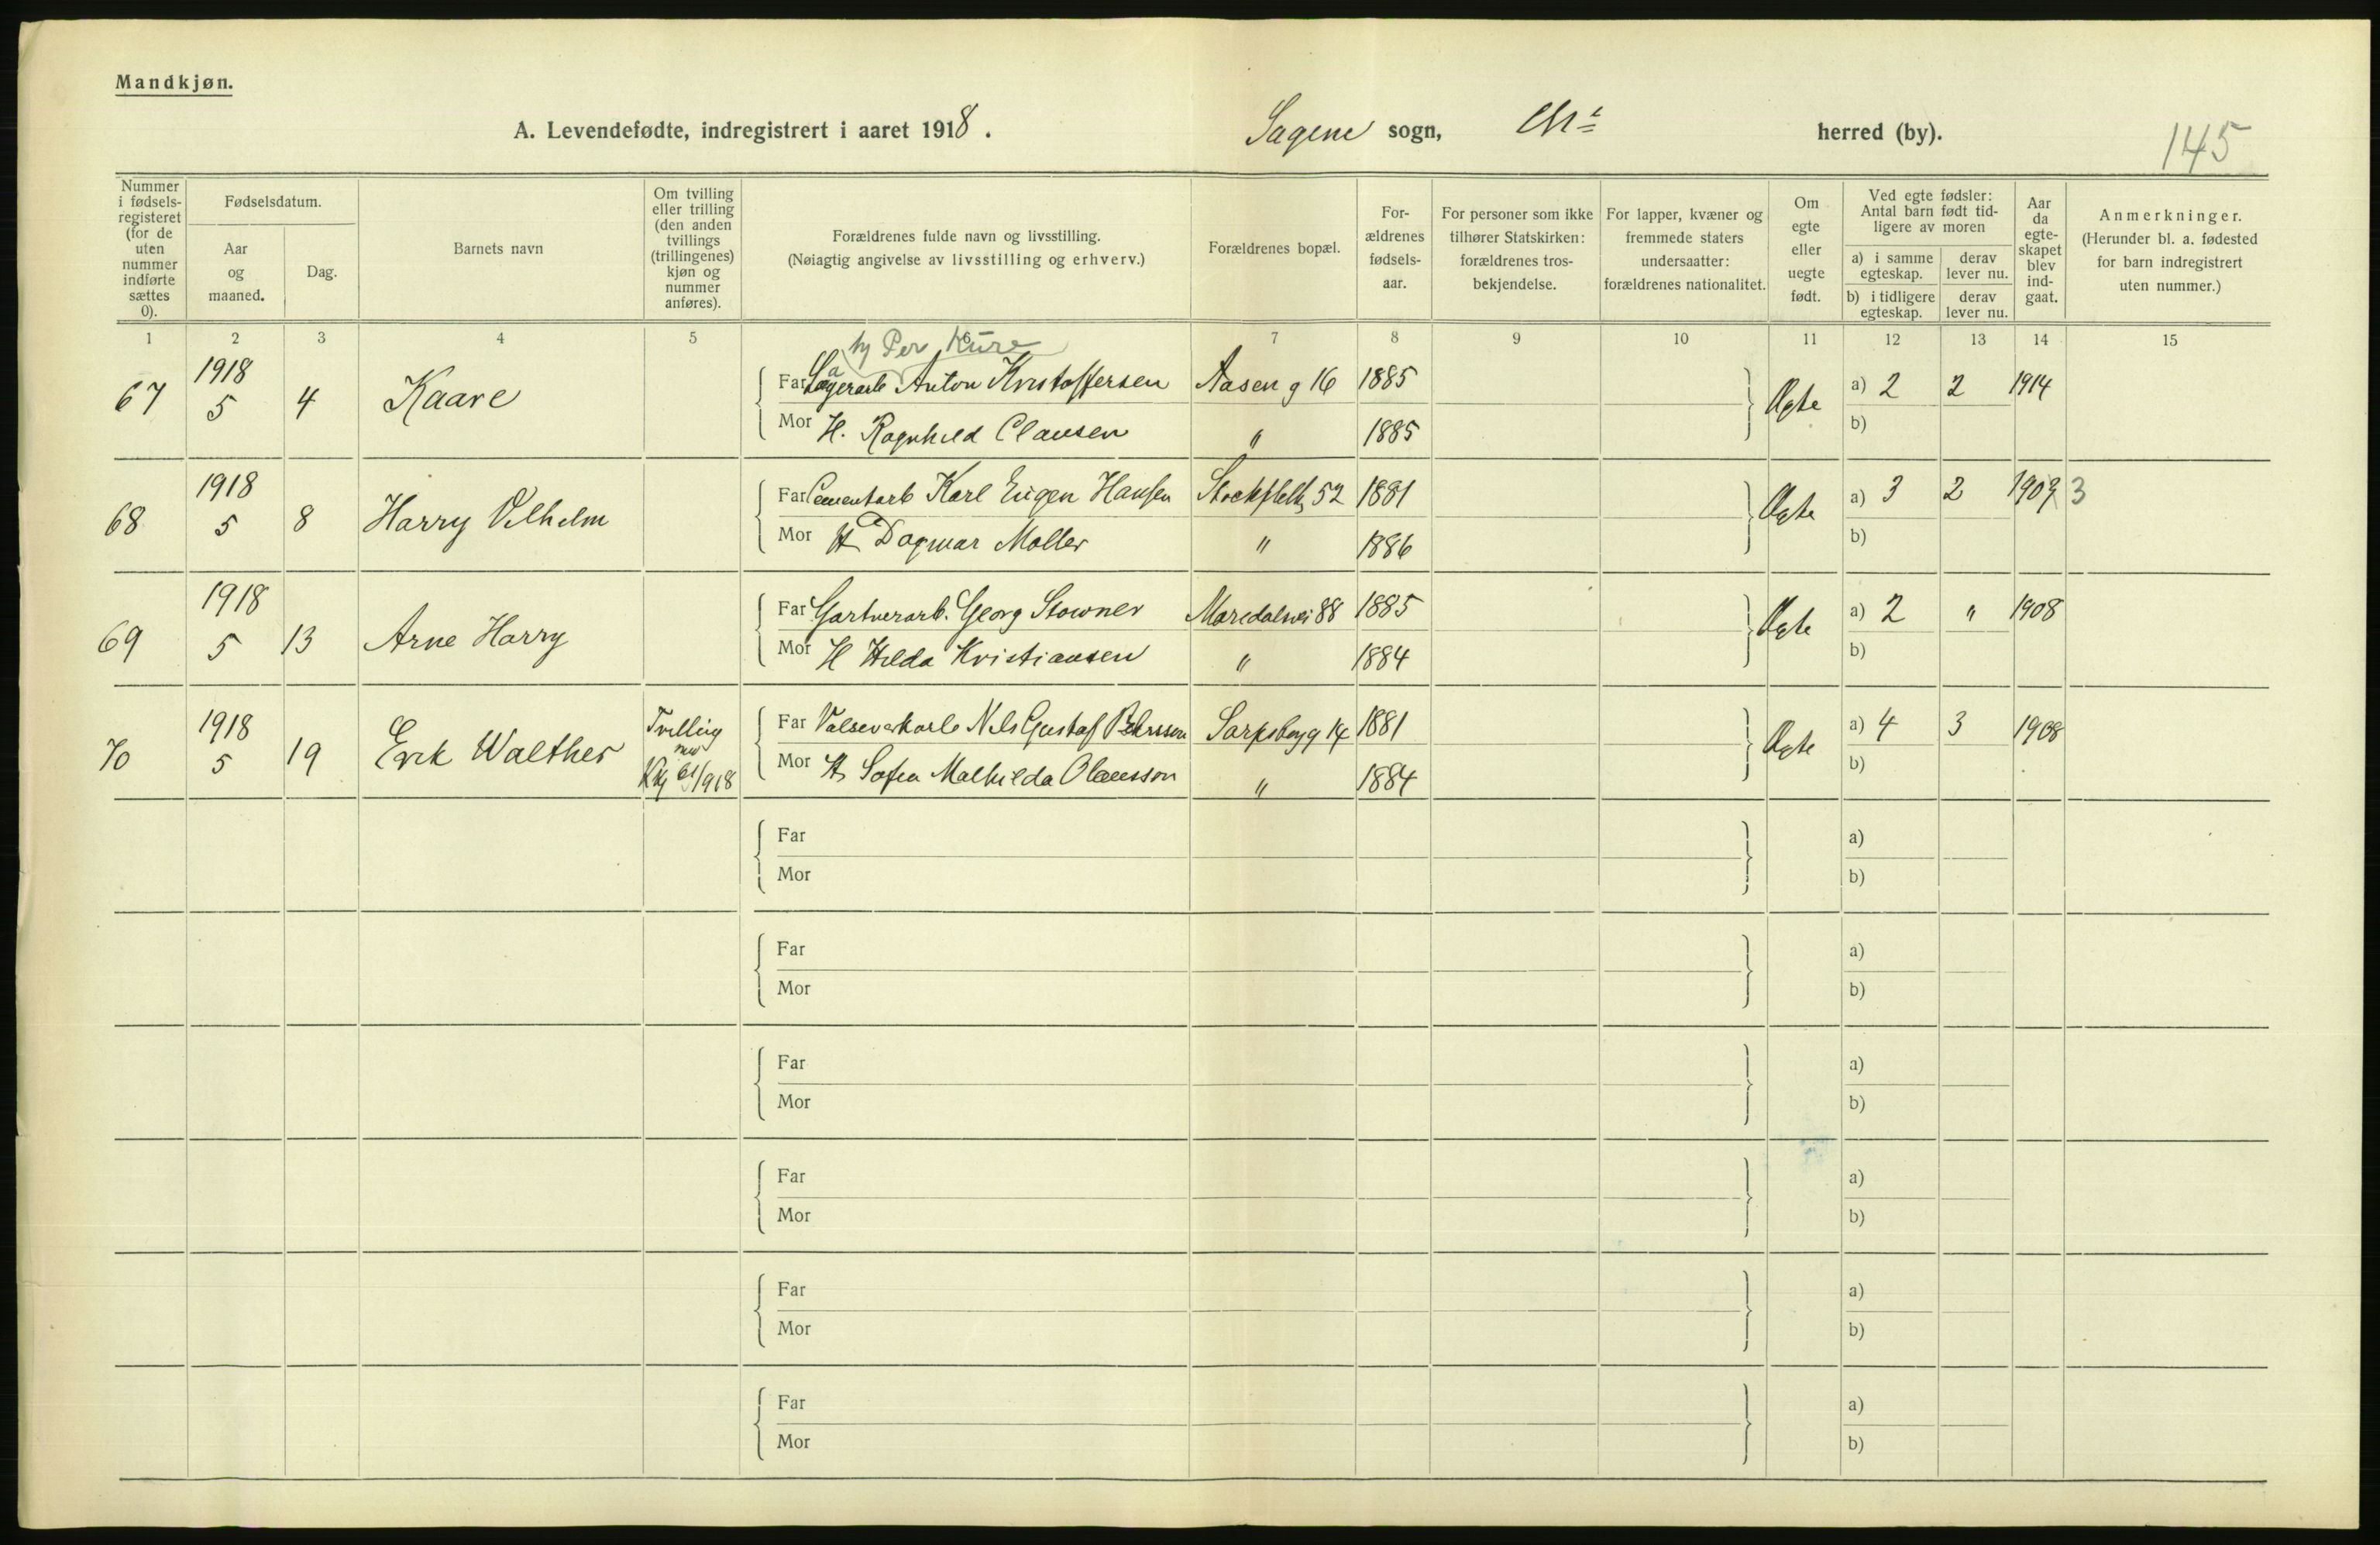 Mandkjøn.
A. Levendefødte, indregistrert i aaret 1918. Sagene sogn, Chr herred (by).
145
Nummer i fødselsregisteret (for de uten nummer indførte sættes 0).
Fødselsdatum.
Aar og maaned.
Dag.
Barnets navn
Om tvilling eller trilling (den anden tvillings (trillingenes) kjøn og nummer anføres).
Forældrenes fulde navn og livsstilling.
(Nøiagtig angivelse av livsstilling og erhverv.)
Forældrenes bopæl.
Forældrenes fødselsaar.
For personer som ikke tilhører Statskirken: forældrenes trosbekjendelse.
For lapper, kvæner og fremmede staters undersaatter: forældrenes nationalitet.
Om egte eller uegte født.
Ved egte fødsler: Antal barn født tidligere av moren
a) i samme egteskap. derav lever nu.
b) i tidligere egteskap. derav lever nu.
Aar da egteskapet blev indgaat.
Anmerkninger.
(Herunder bl. a. fødested for barn indregistrert uten nummer.)
1 2 3 4 5 6 7 8 9 10 11 12 13 14 15
Per Kure
67 1918 5 4 Kaare Far Lagerarb Anton Kristoffersen Aaseng 16 1885 Ægte a) 2 2 1914
Mor H. Ragnhild Clausen " 1885 b)
68 1918 5 8 Harry Vilhelm Far Cementarb Karl Eugen Hansen Stockflethg 52 1881 Ægte a) 3 2 1909 3
Mor H Dagmar Møller " 1886 b)
69 1918 5 13 Arne Harry Far Gartnerarb. Georg Stowner Maredalsvei 88 1885 Ægte a) 2 " 1908
Mor H Hilda Kristiansen " 1884 b)
70 1918 5 19 Erik Walther Tvilling Far Valseverkarb Nils Gustaf Pehrsson Sarpsborg g 14 1881 Ægte a) 4 3 1908
Mor H Sofia Mathilda Olausson " 1884 b)
Far a)
Mor b)
Far a)
Mor b)
Far a)
Mor b)
Far a)
Mor b)
Far a)
Mor b)
Far a)
Mor b)